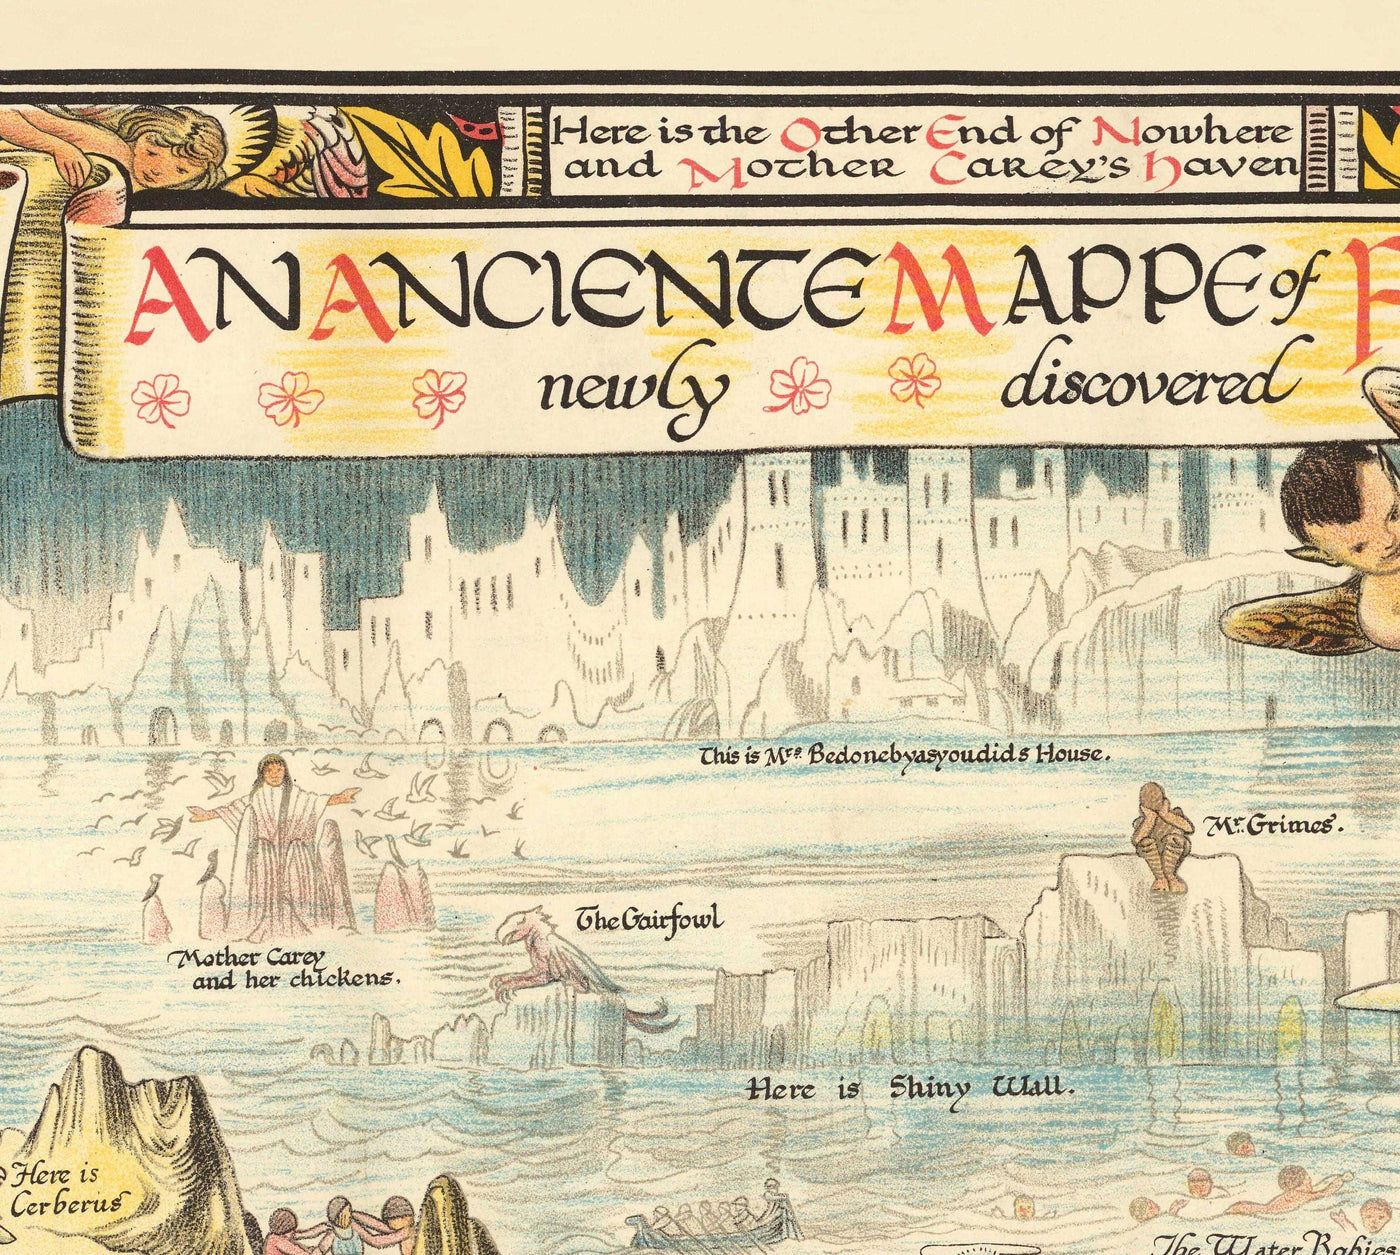 Here is the Other End of Nowhere
and Mother Carey's Haven
AN ANCIENTE MAPPE of F
newly discovered
This is Mrs. Bedonebyasyoudids House.
Mr. Grimes.
The Gairfowl
Mother Carey
and her chickens.
Here is Shiny Wall.
Here is
Cerberus
The Water Babies